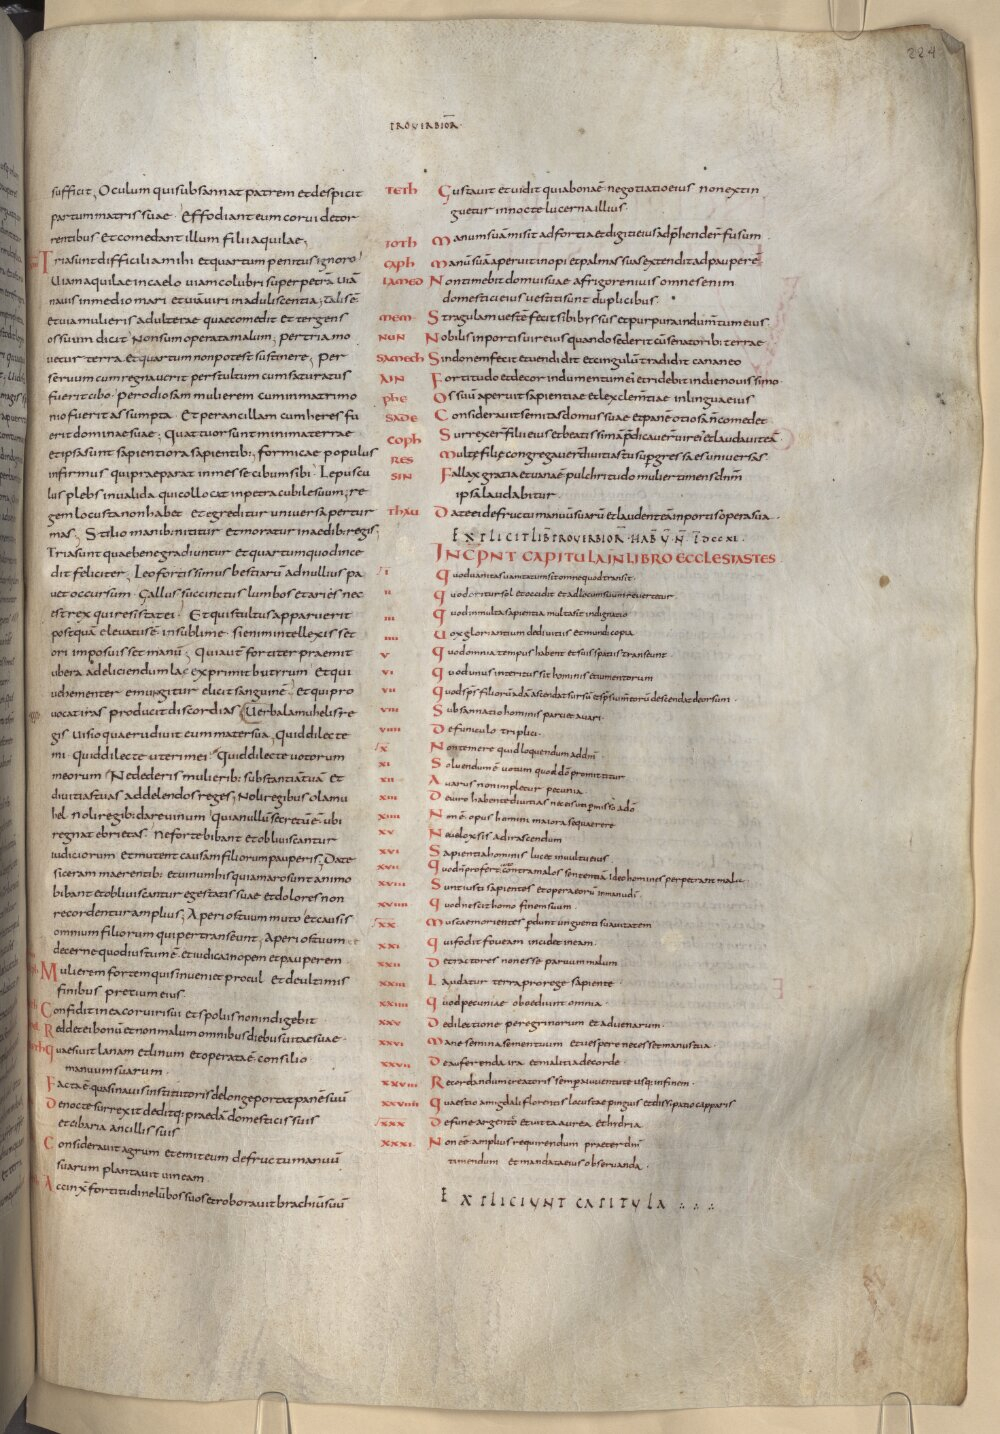 224
PROVERBIOR̄
sufficit; Oculum qui subsannat patrem et despicit
partum matris suae · Effodiant eum corvi de tor
rentibus et comedant illum filii aquilae;
Tria sunt difficilia mihi et quartum penitus ignoro
Viam aquilae in caelo viam colubri super petrā viā
navis in medio mari et viā viri in aduliscentia; Talis ē
et via mulieris adulterae quae comedit et tergens
os suum dicit non sum operata malum; Per tria mo
vetur terra et quartum non potest sustinere; Per
servum cum regnaverit per stultum cum saturatus
fuerit cibo · per odiosam mulierem cum in matrimo
nio fuerit assumpta · Et per ancillam cum heres fu
erit dominae suae; Quattuor sunt minima terrae
et ipsa sunt sapientiora sapientib:; formicae populus
infirmus qui praeparat in messe cibum sibi · Lepuscu
lus plebs invalida qui collocat in petra cubile suum; re
gem locusta non habet · et egreditur universa per tur
mas; Stilio manib: nititur et moratur in aedib: regis;
Tria sunt quae bene gradiuntur et quartum quod ince
dit feliciter; Leo fortissimus bestiarū ad nullius pa
vet occursum · Gallus succinctus lumbos et aries nec
est rex qui resistat ei · Et qui stultus apparuerit
postquā elevatus ē in sublime · si enim intellexisset
ori imposuisset manū; Qui autē fortiter praemit
ubera ad eliciendum lac exprimit butirum · Et qui
vehementer emungitur elicit sanguinē · et qui pro
vocat iras producit discordias; Verba lamuhelis re
gis visio qua erudivit eum mater sua; Quid dilecte
mi · Quid dilecte uteri mei · Quid dilecte votorum
meorum · Ne dederis mulierib: substantiā tuā et
divitias tuas ad delendos reges; Noli regibus o lamu
hel noli regib: dare vinum quia nullū secretū ē ubi
regnat ebrietas · Ne forte bibant et obliviscantur
iudiciorum et mutent causam filiorum pauperis; Date
siceram maerentib: et vinum his qui amaro sunt animo
bibant et obliviscantur egestatis suae et doloris non
recordentur amplius; Aperi os tuum muto et causis
omnium filiorum qui pertranseunt; Aperi os tuum
decerne quod iustum ē et iudica inopem et pauperem
Mulierem fortem quis inveniet procul et de ultimis
finibus pretium eius
Confidit in ea cor viri sui et spoliis non indigebit
Reddet ei bonū et non malum omnibus diebus vitae suae
Quaesivit lanam et linum et operata ē consilio
manuum suarum ·
Facta ē quasi navis institutoris de longe portat panē suū
De nocte surrexit deditq: praedā domesticis suis
et cibaria ancillis suis
Consideravit agrum et emit eum de fructu manuū
suarum plantavit vineam ·
Accinx̄ fortitudine lūbos suos et roboravit brachiū suū
TETH Gustavit et vidit quia bona ē negotiatio eius non extin
guetur in nocte lucerna illius ·
IOTH Manum suā misit ad fortia et digiti eius adp̄hender̄ fusum
CAPH Manū suā aperuit inopi et palmas suas extendit ad pauperē
LAMED Non timebit domui suae a frigore nivis omnes enim
domestici eius vestiti sunt duplicibus ·
MEM Stragulam vestē fecit sibi byssus et purpura indum̄tum eius
NUN Nobilis in portis vir eius quando sederit cū senatorib: terrae
SAMECH Sindonem fecit et vendidit et cingulū tradidit cananeo
AIN Fortitudo et decor indumentum ei et ridebit in die novissimo
PHE Os suū aperuit sapientiae et lex clem̄tiae in lingua eius
SADE Consideravit semitas domus suae et panē otiosa n̄ comedet
COPH Surrexer̄ filii eius et beatissimā p̄dicaver̄ vir ei et laudavit eā
RES Multę filię congregaver̄ divitias tu sup̄gressa es universas
SIN Fallax gratia et vana ē pulchritudo mulier timens dn̄m
ipsa laudabitur ·
THAU Date ei de fructu manuū suarū et laudent eā in portis opera sua ·
EXPLICIT LIB̄ PROVERBIOR̄ · HAB̄ V̄ N̄ ĪDCCXL ·
INCPNT CAPITULA IN LIBRO ECCLESIASTES
I Quod vanitas vanitatum sit omne quod transit ·
II Quod oritur sol et occidit et ad locum suum revertetur
III Quod in multa sapientia multa sit indignatio
IIII Vox gloriantium de divitiis et mundi copia
V Quod omnia tempus habent et suis spatiis transeunt
VI Quod unus interitus sit hominis et iumentorum
VII Quod sp̄s filiorū adā ascendat sursū et sp̄s iumtorū descendat deorsum
VIII Subsannatio hominis parve avari ·
VIIII De funiculo triplici ·
X Non temere quid loquendum ad dm̄
XI Solvendum ē votum quod dō promittitur
XII Avarus non impletur pecunia
XIII De viro habente divitias nec es p̄misso a dō
XIIII Non ē opus homini maiora se quaerere
XV Ne velox sis ad irascendum
XVI Sapientia hominis lucet in vultu eius
XVII Quod n̄ profert contra malos sententia ideo homines perpetrant mala
XVIII Sunt iusti sapientes et opera eorū in manu dī
XVIIII Quod nescit homo finem suum
XX Muscae morientes p̄dunt unguenti suavitatem
XXI Qui fodit foveam incidet in eam
XXII Detractores non esse parvum malum
XXIII Laudatur terra pro rege sapiente
XXIIII Quod pecuniae oboediunt omnia ·
XXV De dilectione peregrinorum et advenarum
XXVI Mane semina sementivum et vespere ne cesset manus tua
XXVII De auferenda ira et malitia de corde
XXVIII Recordandum creatoris semp̄ a iuventute usq: in finem
XXVIIII Quaestio amigdali florentis locustae pinguis et dissipatio capparis
XXX De fune argenteo et vitta aurea et hidria
XXXI Non ēe amplius requirendum praeter dm̄
timendum et mandata eius observanda ·
EXPLICIUNT CAPITULA